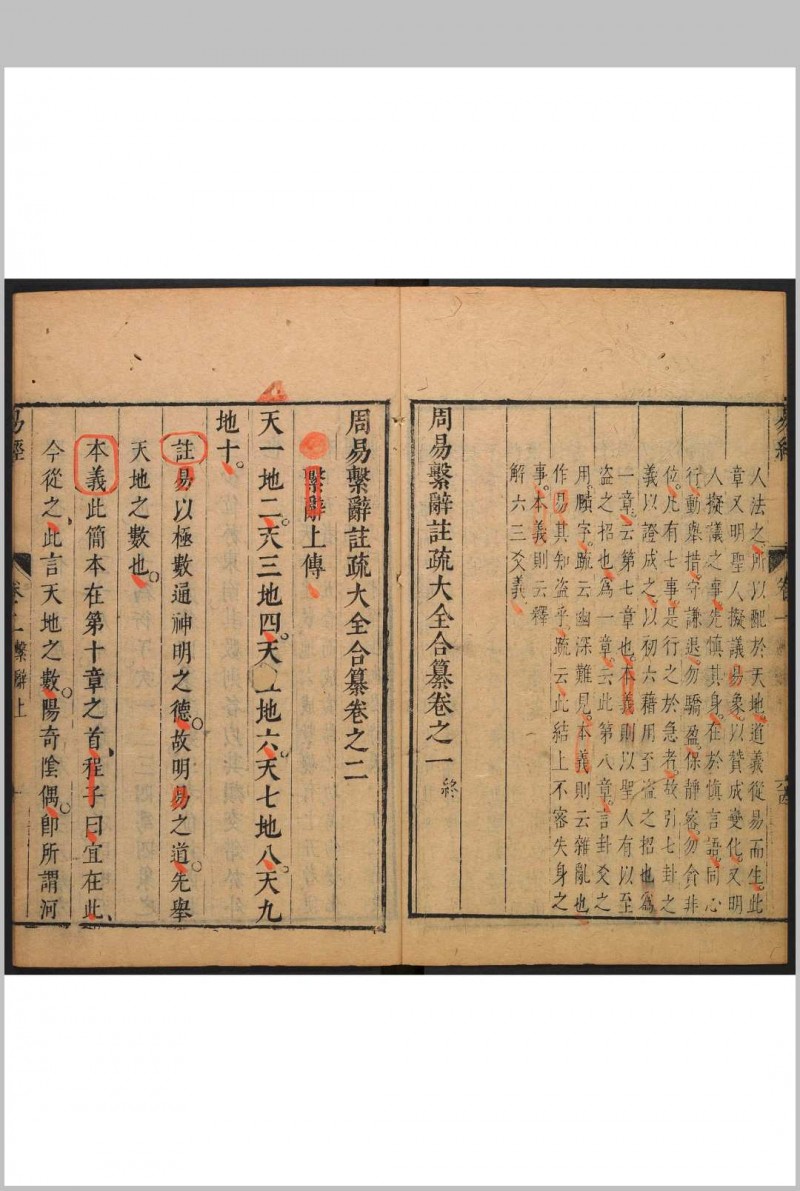 人法之所以配於天地道義從易而生此
章又明聖人擬議易象以贊成變化又明
人擬議之事先慎其身在於慎言語同心
行動舉措守謙退勿驕盈保靜密勿貪非
位凡有七事是行之於急者故引七卦之
義以證成之以初六藉用至盜之招也為
一章云第七章也本義則以聖人有以至
盜之招也為一章云此第八章言卦爻之
用賾字疏云幽深難見本義則云雜亂也
作易其知盜乎疏云此結上不密失身之
事本義則云釋
解六三爻義
周易繫辭註疏大全合纂卷之一 終
周易繫辭註疏大全合纂卷之二
繫辭上傳
天一地二天三地四天五地六天七地八天九
地十
註易以極數通神明之德故明易之道先舉
天地之數也
本義此簡本在第十章之首程子曰宜在此
今從之此言天地之數陽奇陰偶即所謂河
易經 卷之二 繫辭上 一